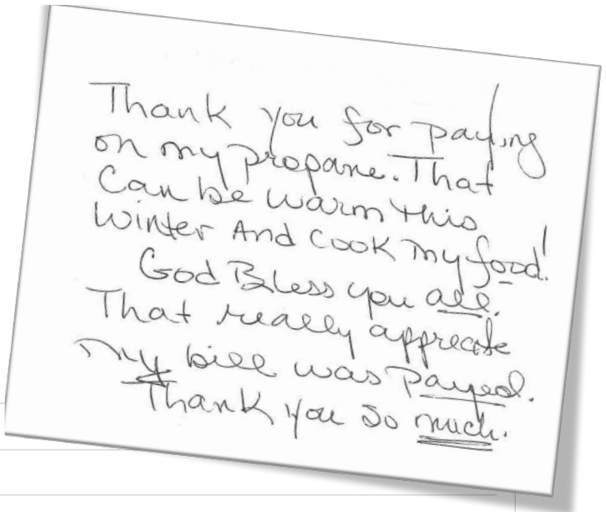 Thank you for paying
on my propane. That
Can be warm this
winter And cook my food!
God Bless you all.
That really appreciate
my bill was payed.
Thank you so much.